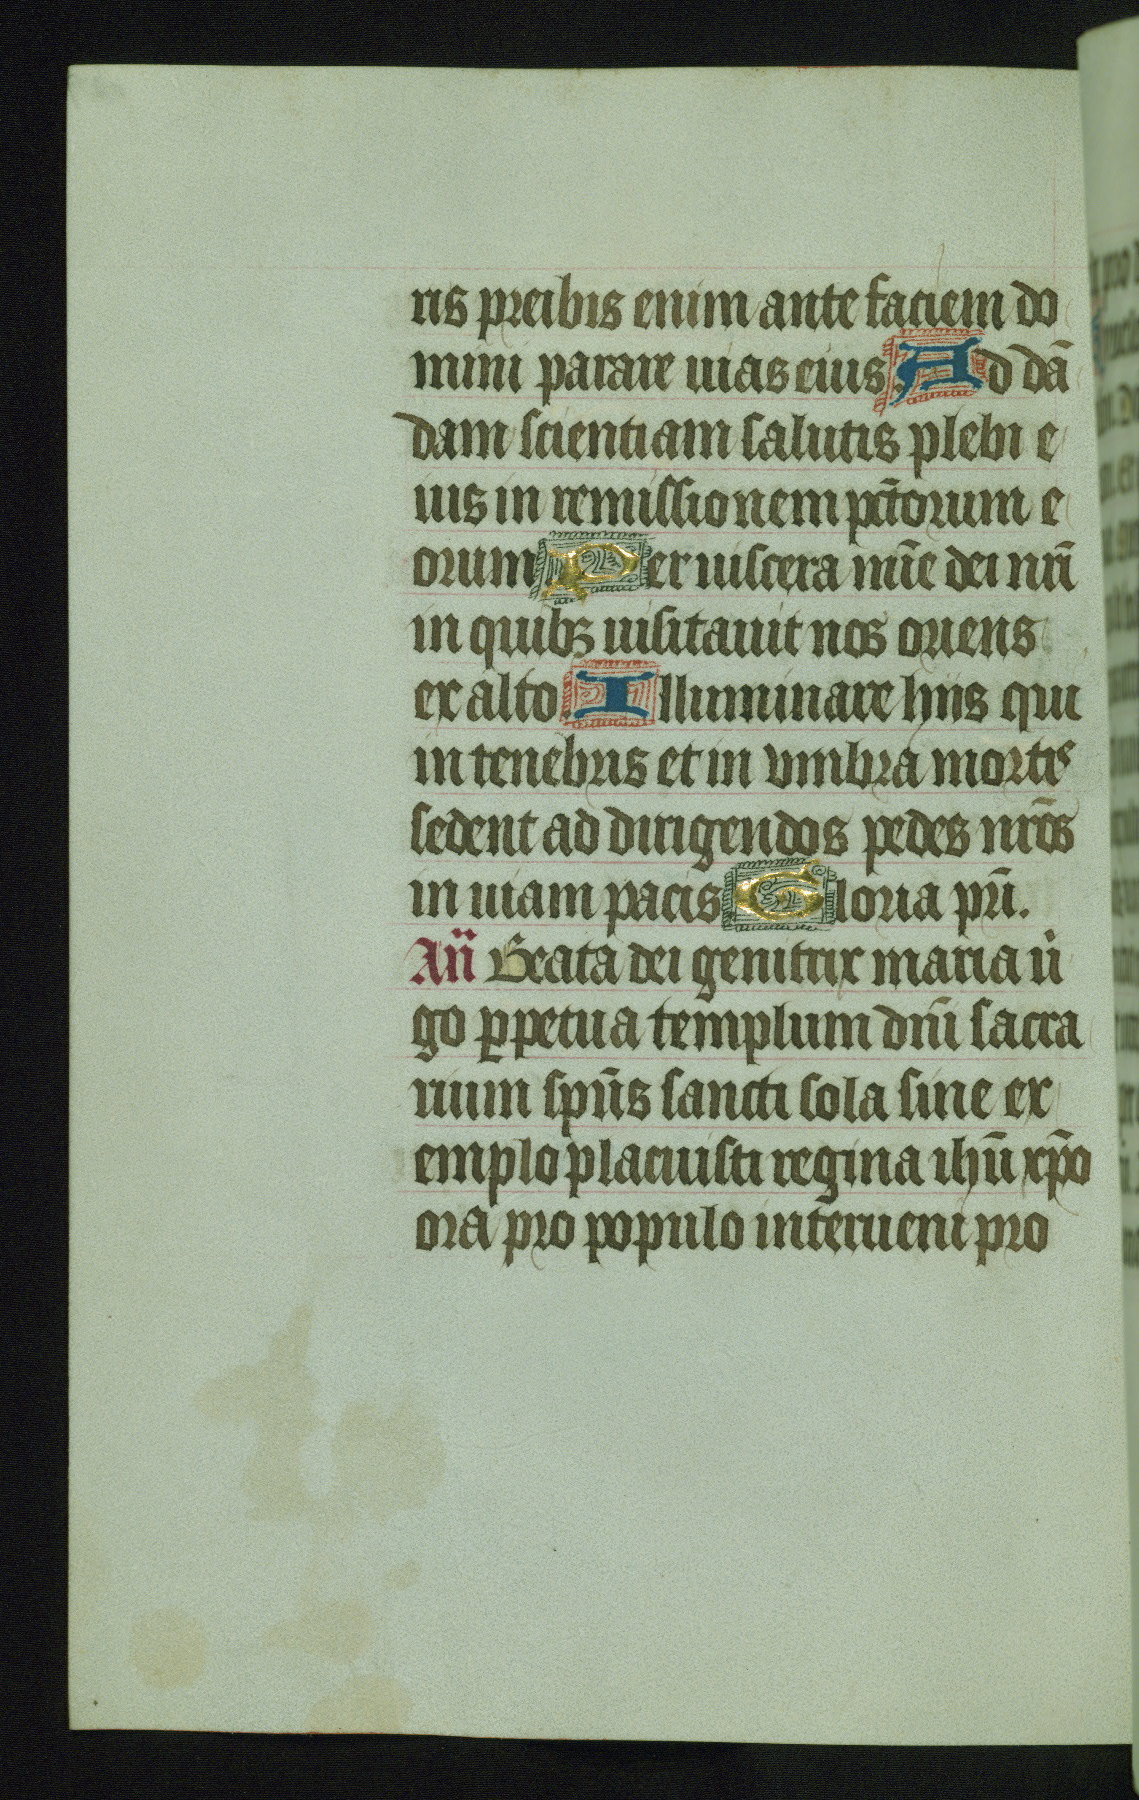 ris preibis enim ante faciem do
mini parare uias eius. Ad dā
dam scientiam salutis plebi e
ius in remissionem pctō̄rum e
orum. Per uiscera mīe dei nrī
in quibꝫ uisitauit nos oriens
ex alto. Illuminare hiis qui
in tenebris et in vmbra mortis
sedent ad dirigendos pedes nrōs
in uiam pacis. Gloria prī.
An̄ Beata dei genitrix maria uͥ
go ꝑpetua templum dnī sacra
rium spūs sancti sola sine ex
emplo placuisti regina ihū xp̄o
ora pro populo interueni pro